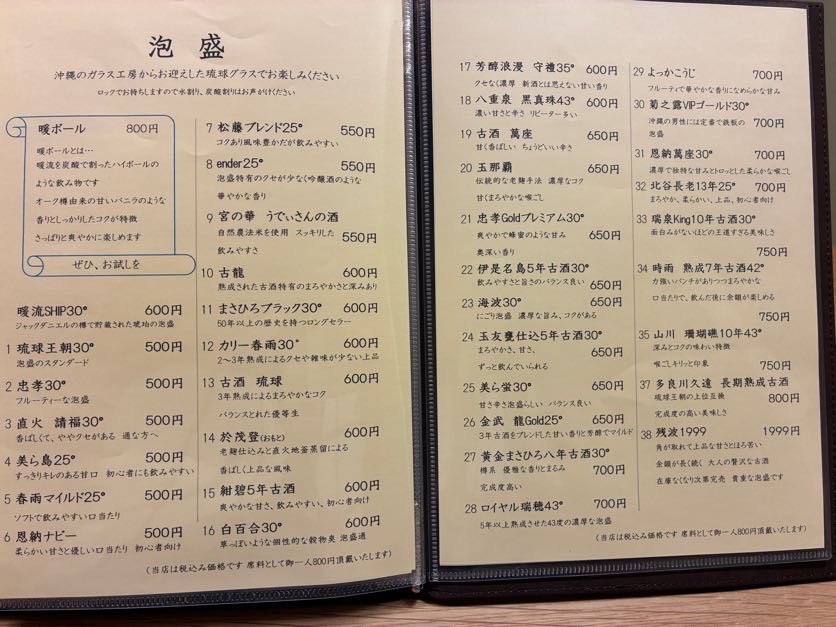 泡盛
沖縄のガラス工房からお迎えした琉球グラスでお楽しみください
ロックでお持ちしますので水割り、炭酸割りはお声がけください
暖ボール 800円
暖ボールとは…
暖流を炭酸で割ったハイボールの
ような飲み物です
オーク樽由来の甘いバニラのような
香りとしっかりしたコクが特徴
さっぱりと爽やかに楽しめます
ぜひ、お試しを
暖流SHIP30° 600円
ジャックダニエルの樽で貯蔵された琥珀の泡盛
1 琉球王朝30° 500円
泡盛のスタンダード
2 忠孝30° 500円
フルーティーな泡盛
3 直火 請福30° 500円
香ばしくて、ややクセがある 通な方へ
4 美ら島25° 500円
すっきりキレのある甘口 初心者にも飲みやすい
5 春雨マイルド25° 500円
ソフトで飲みやすい口当たり
6 恩納ナビー 500円
柔らかい甘さと優しい口当たり 初心者向け
7 松藤ブレンド25° 550円
コクあり風味豊かだが飲みやすい
8 ender25° 550円
泡盛特有のクセが少なく吟醸酒のような
華やかな香り
9 宮の華 うでぃさんの酒
自然農法米を使用 スッキリした 550円
飲みやすさ
10 古龍 600円
熟成された古酒特有のまろやかさと深みあり
11 まさひろブラック30° 600円
50年以上の歴史を持つロングセラー
12 カリー春雨30° 600円
2〜3年熟成によるクセや雑味が少ない上品
13 古酒 琉球 600円
3年熟成によるまろやかなコク
バランスとれた優等生
14 於茂登(おもと) 600円
老麹仕込みと直火地釜蒸留による
香ばしく上品な風味
15 紺碧5年古酒 600円
爽やかな甘さ、飲みやすい、初心者向け
16 白百合30° 600円
草っぽいような個性的な穀物臭 泡盛通
(当店は税込み価格です 席料として御一人800円頂戴いたします)
17 芳醇浪漫 守禮35° 600円
クセなく濃厚 新酒とは思えない甘い香り
18 八重泉 黒真珠43° 600円
濃い甘さと辛さ リピーター多い
19 古酒 萬座 650円
甘く香ばしい ちょうどいい辛さ
20 玉那覇 650円
伝統的な老麹手法 濃厚なコク
甘くまろやかな喉ごし
21 忠孝Goldプレミアム30°
爽やかで蜂蜜のような甘み 650円
奥深い香り
22 伊是名島5年古酒30°
飲みやすさと旨さのバランス良い 650円
23 海波30° 650円
にごり泡盛 濃厚な旨み、コクがある
24 玉友甕仕込5年古酒30°
まろやかさ、甘さ、 650円
ずっと飲んでいられる
25 美ら蛍30° 650円
甘さ辛さ泡盛らしい バランス良い
26 金武 龍Gold25° 650円
3年古酒をブレンドした甘い香りと芳醇でマイルド
27 黄金まさひろ八年古酒30°
樽系 優雅な香りとまるみ 700円
完成度高い
28 ロイヤル瑞穂43° 700円
5年以上熟成させた43度の濃厚な泡盛
29 よっかこうじ 700円
フルーティで華やかな香りになめらかな甘み
30 菊之露VIPゴールド30°
沖縄の男性には定番で鉄板の 700円
泡盛
31 恩納萬座30° 700円
濃厚で独特な甘みとトロッとした柔らかな喉ごし
32 北谷長老13年25° 700円
まろやか、柔らかい、上品、初心者向け
33 瑞泉King10年古酒30°
面白みがないほどの王道すぎる美味しさ
750円
34 時雨 熟成7年古酒42°
力強いパンチがありつつまろやかな
口当たりで、飲んだ後に余韻が楽しめる
750円
35 山川 珊瑚礁10年43°
深みとコクの味わい特徴
喉ごしキリッと印象 750円
37 多良川久遠 長期熟成古酒
琉球王朝の上位互換 800円
完成度の高い美味しさ
38 残波1999 1999円
角が取れて上品な甘さとほろ苦い
余韻が長く続く 大人の贅沢な古酒
在庫なくなり次第完売 貴重な泡盛です
(当店は税込み価格です 席料として御一人800円頂戴いたします)